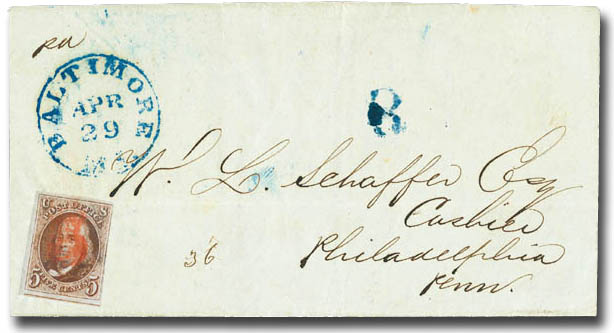 pd
BALTIMORE
APR
29
Md
R
Wm L. Schaffer Esq
Cashier
Philadelphia
Penn.
36
U S
POST OFFICE
5 FIVE CENTS 5